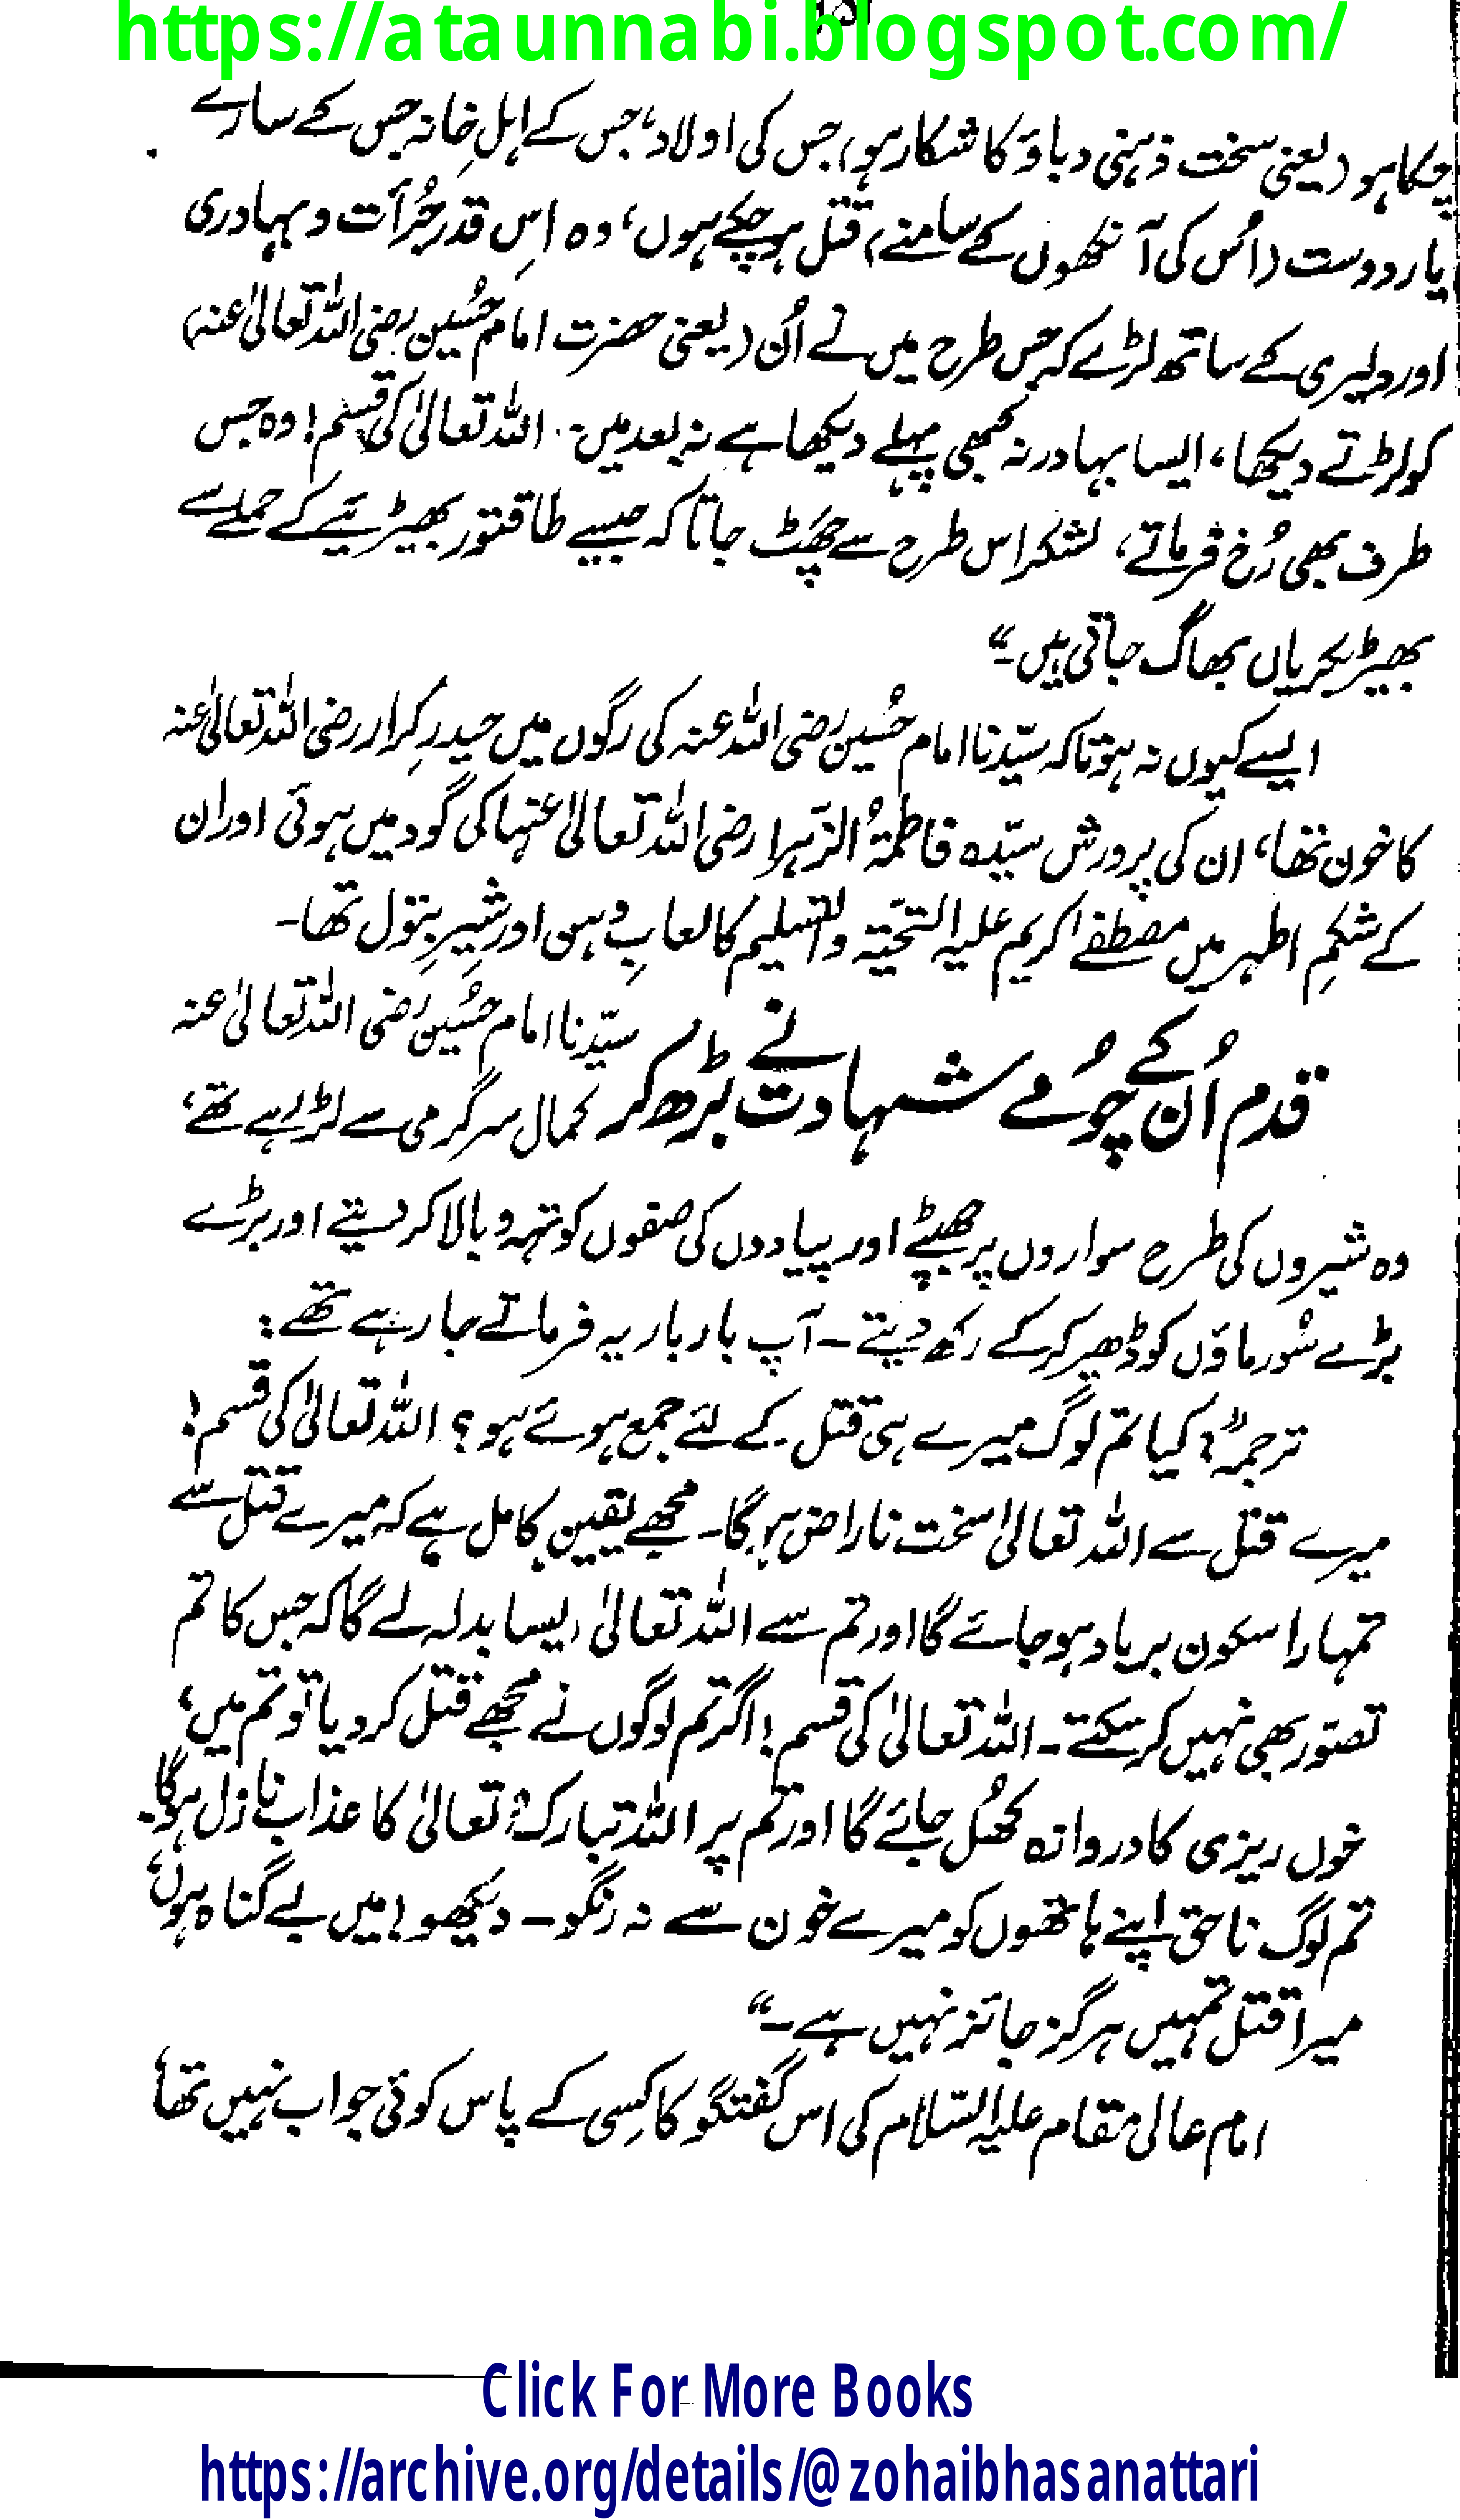 https://ataunnabi.blogspot.com/
چکا ہو (یعنی سخت ذہنی دباؤ کا شکار ہو)، جس کی اولاد، جس کے اہلِ خانہ جس کے سارے
یار دوست (اُس کی آنکھوں کے سامنے) قتل ہو چکے ہوں، وہ اِس قدر جُرأت و بہادری
اور دلیری کے ساتھ لڑے کہ جس طرح میں نے اُن (یعنی حضرت امام حُسین رضی اللہ تعالیٰ عنہ)
کو لڑتے دیکھا، ایسا بہادر نہ کبھی پہلے دیکھا ہے نہ بعد میں۔ اللہ تعالیٰ کی قسم! وہ جس
طرف بھی رُخ فرماتے، لشکر اس طرح سے چھَٹ جاتا کہ جیسے طاقتور بھیڑیئے کے حملے سے
بھیڑ بکریاں بھاگ جاتی ہیں۔“
ایسے کیوں نہ ہوتا کہ سیّدنا امام حُسین رضی اللہ عنہ کی رگوں میں حیدرِ کرار رضی اللہ تعالیٰ عنہ
کا خون تھا، ان کی پرورش سیّدہ فاطمۃُ الزّہرا رضی اللہ تعالیٰ عنہا کی گود میں ہوئی اور ان
کے شکمِ اطہر میں مصطفےٰ کریم علیہ التحیّۃ والتسلیم کا لعابِ دہن اور شیرِ بتول تھا۔
قدم اُن کے چُومے شہادت نے بڑھ کر
سیّدنا امام حُسین رضی اللہ تعالیٰ عنہ
کمال سرگرمی سے لڑ رہے تھے،
وہ شیروں کی طرح سواروں پر جھپٹے اور پیادوں کی صفوں کو تہہ و بالا کر دیتے اور بڑے
بڑے سُورماؤں کو ڈھیر کر کے رکھ دیتے۔ آپ بار بار یہ فرماتے جا رہے تھے:
ترجمہ: ”کیا تم لوگ میرے ہی قتل کے لئے جمع ہوئے ہو؟ اللہ تعالیٰ کی قسم!
میرے قتل سے اللہ تعالیٰ سخت ناراض ہو گا۔ مجھے یقین کامل ہے کہ میرے قتل سے
تمہارا سکون برباد ہو جائے گا اور تم سے اللہ تعالیٰ ایسا بدلہ لے گا کہ جس کا تم
تصوّر بھی نہیں کر سکتے۔ اللہ تعالیٰ کی قسم! اگر تم لوگوں نے مجھے قتل کر دیا تو تم میں،
خوں ریزی کا دروازہ کھُل جائے گا اور تم پر اللہ تبارک و تعالیٰ کا عذاب نازل ہو گا۔
تم لوگ ناحق اپنے ہاتھوں کو میرے خون سے نہ رنگو۔ دیکھو! میں بے گناہ ہوں،
میرا قتل تمہیں ہرگز جائز نہیں ہے۔“
امام عالی مقام علیہ السّلام کی اس گفتگو کا کِسی کے پاس کوئی جواب نہیں تھا،
Click For More Books
https://archive.org/details/@zohaibhasanattari